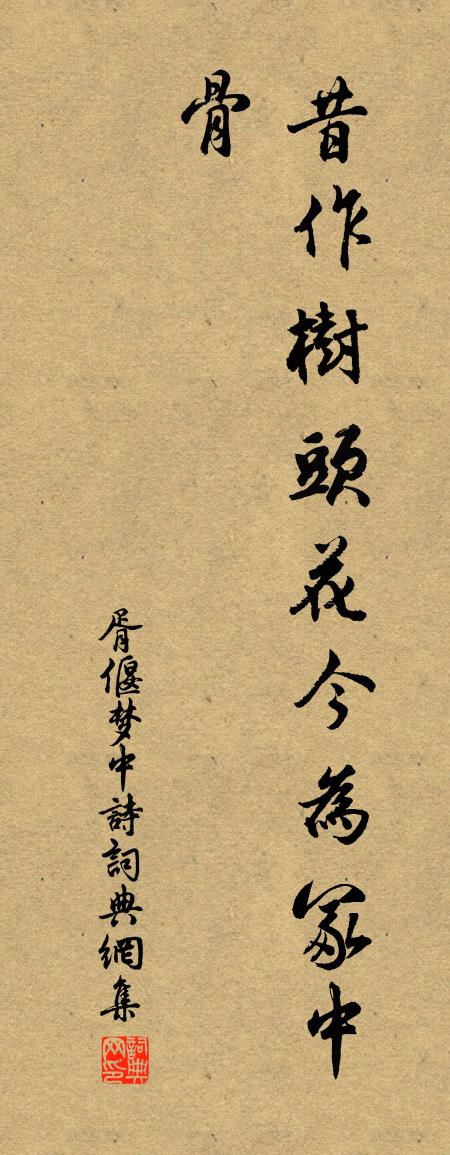 昔作樹頭花今為冢中
骨
胥偃梦中詩詞典網集
詞典
网印